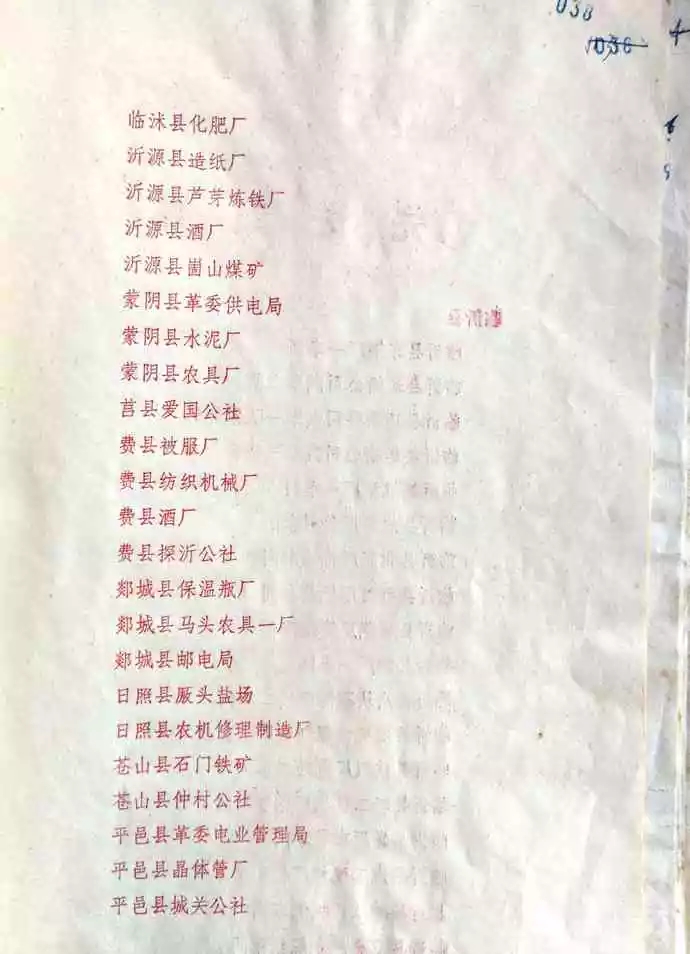 038
临沭县化肥厂
沂源县造纸厂
沂源县芦芽炼铁厂
沂源县酒厂
沂源县崮山煤矿
蒙阴县革委供电局
蒙阴县水泥厂
蒙阴县农具厂
莒县爱国公社
费县被服厂
费县纺织机械厂
费县酒厂
费县探沂公社
郯城县保温瓶厂
郯城县马头农具一厂
郯城县邮电局
日照县厫头盐场
日照县农机修理制造厂
苍山县石门铁矿
苍山县仲村公社
平邑县革委电业管理局
平邑县晶体管厂
平邑县城关公社